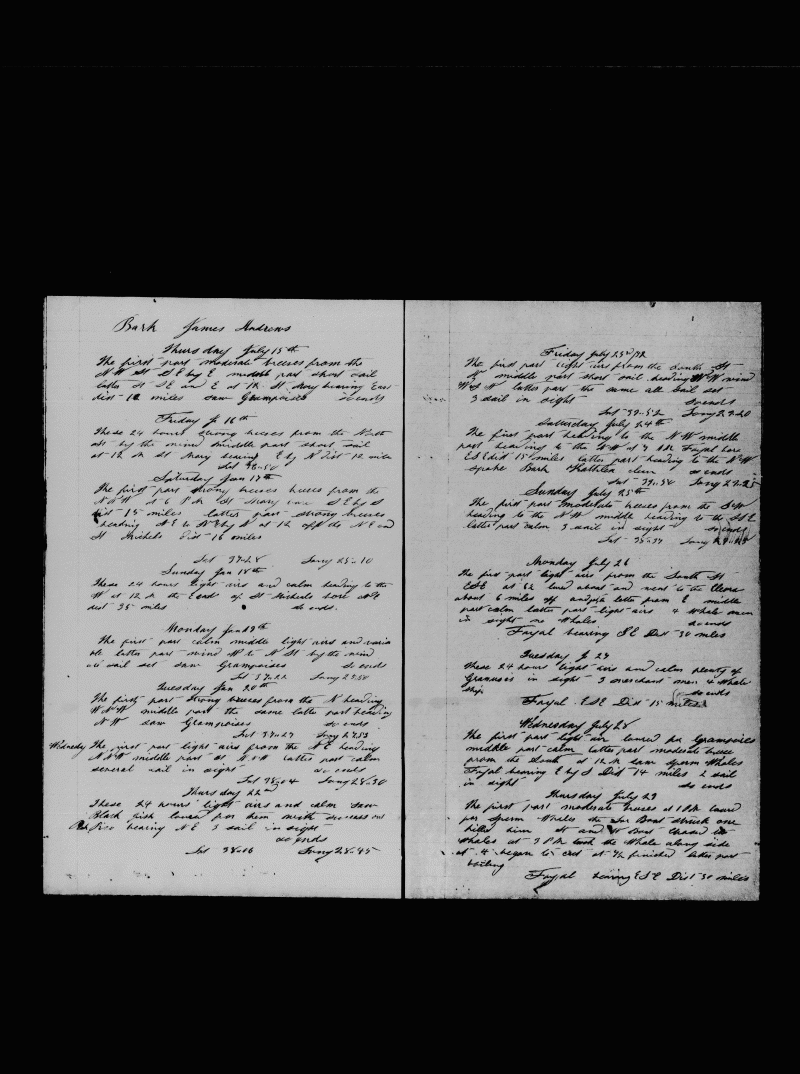 Bark James Andrews
Thursday July 15th
The first part moderate breeses from the
N W St S E by E middle part short sail
latter St S E and E at 12 St Mary bearing East
dist 12 miles saw Grampoises So ends
Friday J 16th
These 24 hours strong breeses from the North
by the wind middle part short sail
at 12 M St Mary bearing E by N Dist 12 mile
Lat 36-50
Saturday Jan 17th
The first part strong breeses from the
N N W at 6 P M St Mary S E by S
dist 15 miles latter part strong breeses
heading N E to N E by N at 12 off the N E end
St Michels Dist 16 miles
Lat 37-28 Long 25-10
Sunday Jan 18th
These 24 hours light airs and calm heading to the
W at 12 M the East of St Michels bore
dist 35 miles So ends
Monday Jan 19th
The first part calm middle light airs and varia
ble latter part wind W to N St by the wind
all sail set saw Grampoises So ends
Lat 37-22 Long 27-50
Tuesday Jan 20th
The first part strong breeses from the N heading
W N W middle part the same latter part heading
N W saw Grampoises So ends
Lat 37-27 Long 27-53
Wednesdy The first part light airs from the N E heading
N N W middle part at N N W latter part calm
several sail in sight So ends
Lat 38-04 Long 28-30
Thursday 22nd
These 24 hours light airs and calm saw
Black fish lowed for them with success
Pico bearing N E 3 sail in sight
So ends
Lat 38-16 Long 28-45
Friday July 23rd
The first part light airs from the South St
W middle part short sail heading W N W wind
W S W latter part the same all sail set
3 sail in sight So ends
Lat 39-52 Long 29-20
Saturday July 24th
The first part heading to the N W middle
part heading to the W at 7 P M Fayal bore
E S E dist 15 miles latter part heading to the N W
spoke Bark Kathlen clean So ends
Lat 39-54 Long 29-25
Sunday July 25th
The first part moderate breeses from the S W
heading to the N W middle heading to the St E
latter part calm 3 sail in sight So ends
Lat 38-37 Long
Monday July 26
The first part light airs from the South St
E S E at lured about and went to the
about 6 miles off and latter from E middle
part calm latter part light airs 4 Whale men
in sight no Whales So ends
Fayal bearing S E Dist 30 miles
Tuesday J 27
These 24 hours light airs and calm plenty of
in sight 3 merchant men 4 Whale
ship So ends
Fayal E S E Dist 15 miles
Wednesday July 28
The first part light air lowed for Grampoises
middle part calm latter part moderate breese
from the South at 12 M saw sperm Whales
Fayal bearing E by S Dist 14 miles 2 sail
in sight So ends
Thursday July 29
The first part moderate breeses at 1 P M lowed
for sperm Whales the Lar Boat struck one
killed him St and W Boat chased
whales at 3 P M took the Whale along side
at 4 began to cut at 7/2 finished latter part
boiling
Fayal bearing E S E Dist 30 miles